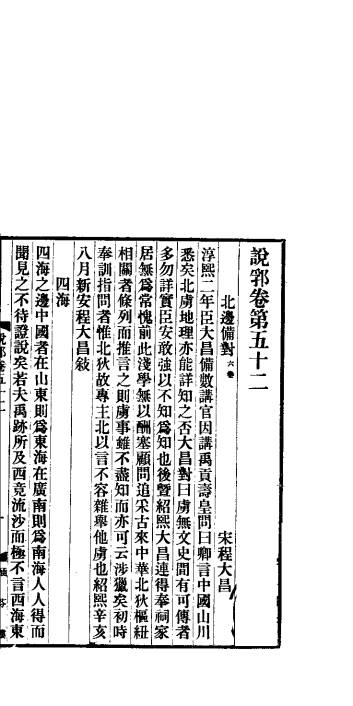 說郛卷第五十二
北邊備對 六卷 宋程大昌
淳熙二年臣大昌備數講官因講禹貢壽皇問曰卿言中國山川
悉矣北虜地理亦能詳知之否大昌對曰虜無文史間有可傳者
多勿詳實臣安敢強以不知爲知也後暨紹熙大昌連得奉祠家
居無爲常愧前此淺學無以酬塞顧問追采古來中華北狄樞紐
相關者條列而推言之則虜事雖不盡知而亦可云涉獵矣初時
奉訓指問者惟北狄故專主北以言不容雜舉他虜也紹熙辛亥
八月新安程大昌敍
四海
四海之邊中國者在山東則爲東海在廣南則爲南海人人得而
聞見之不待證說矣若大禹跡所及西竟流沙而極不言西海東
說郛卷五十二